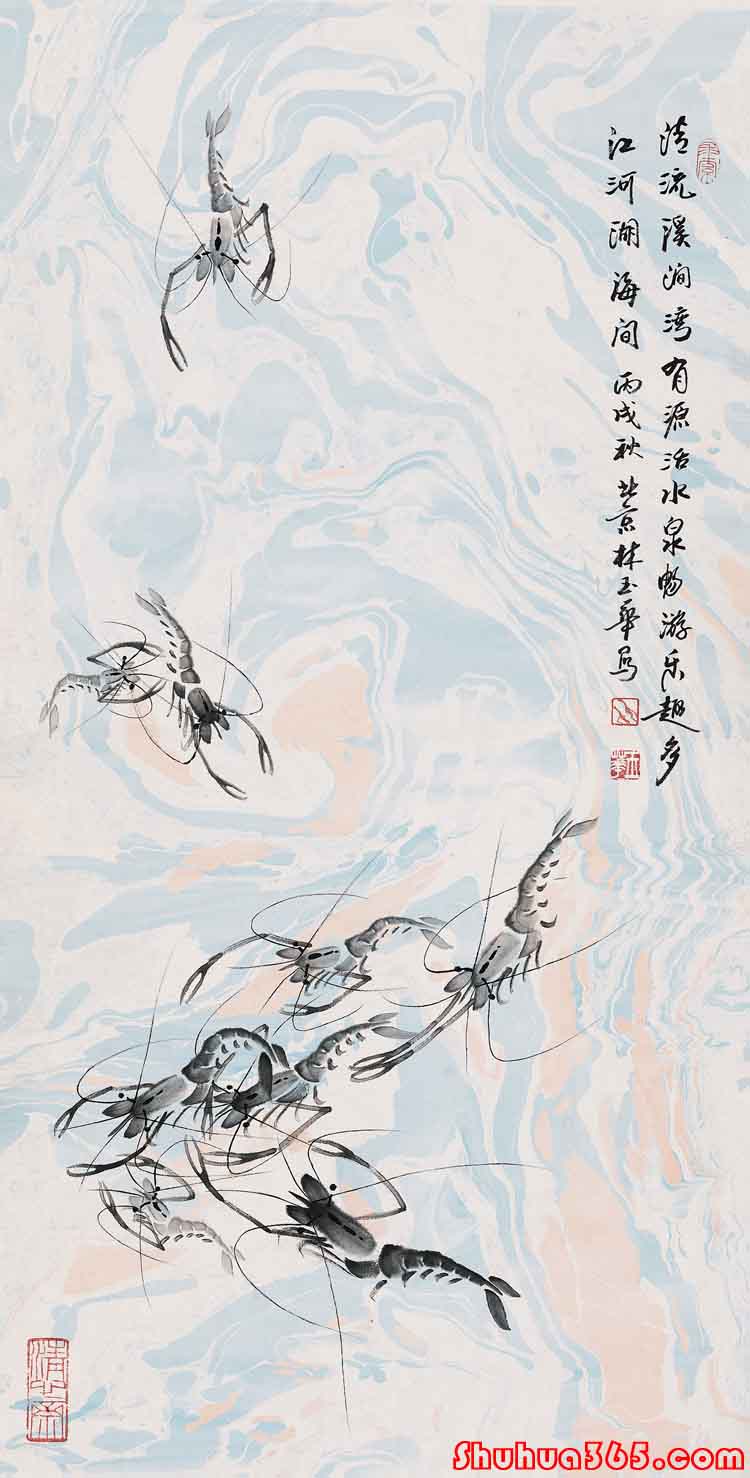 清流溪涧湾有源活水泉畅游乐趣多
江河湖海间 丙戌秋 北京林玉华写
Shuhua365.com